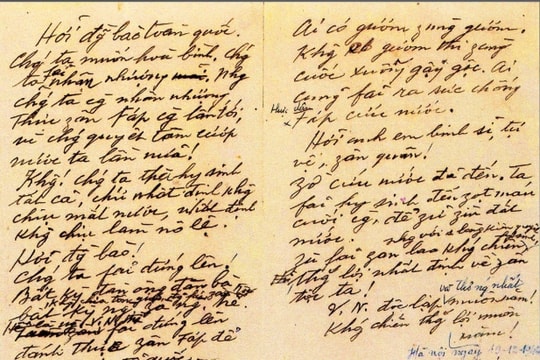 Hỡi đg bào toàn quốc.
Chg ta muốn hoà bình. Chg
ta fải nhân nhượng. Nhg
chg ta cg nhân nhượng
Thực zân Fáp cg lấn tới,
vì chg quyết tâm cướp
nước ta lần nữa!
Khg! Chg ta thà hy sinh
tất cả, chứ nhất định khg
chịu mất nước, nhất định
khg chịu làm nô lệ.
Hỡi đg bào!
Chg ta fải đứng lên!
Bất kỳ đàn ông đàn bà
bất kỳ ng già ng trẻ
fải đứng lên
đánh thực zân Fáp để
Ai có gươm zùng gươm.
Khg có gươm thì zùng
cuốc xuổng gậy gộc. Ai
cũng fải ra sức chống
thực dân
Fáp cứu nước.
Hỡi anh em binh sĩ, tự
vệ, zân quân!
Zờ cứu nước đã đến. Ta
fải hy sinh đến zọt máu
cuối cg, để zữ zìn đất
nước.
Zù fải zan lao khg chiến
thắg lợi nhất định về zân
tộc ta!
V.N. độc lập và thống nhất muôn năm!
Khg chiến thắg lợi muôn
năm!
Hà nội ngày 19-12-1946